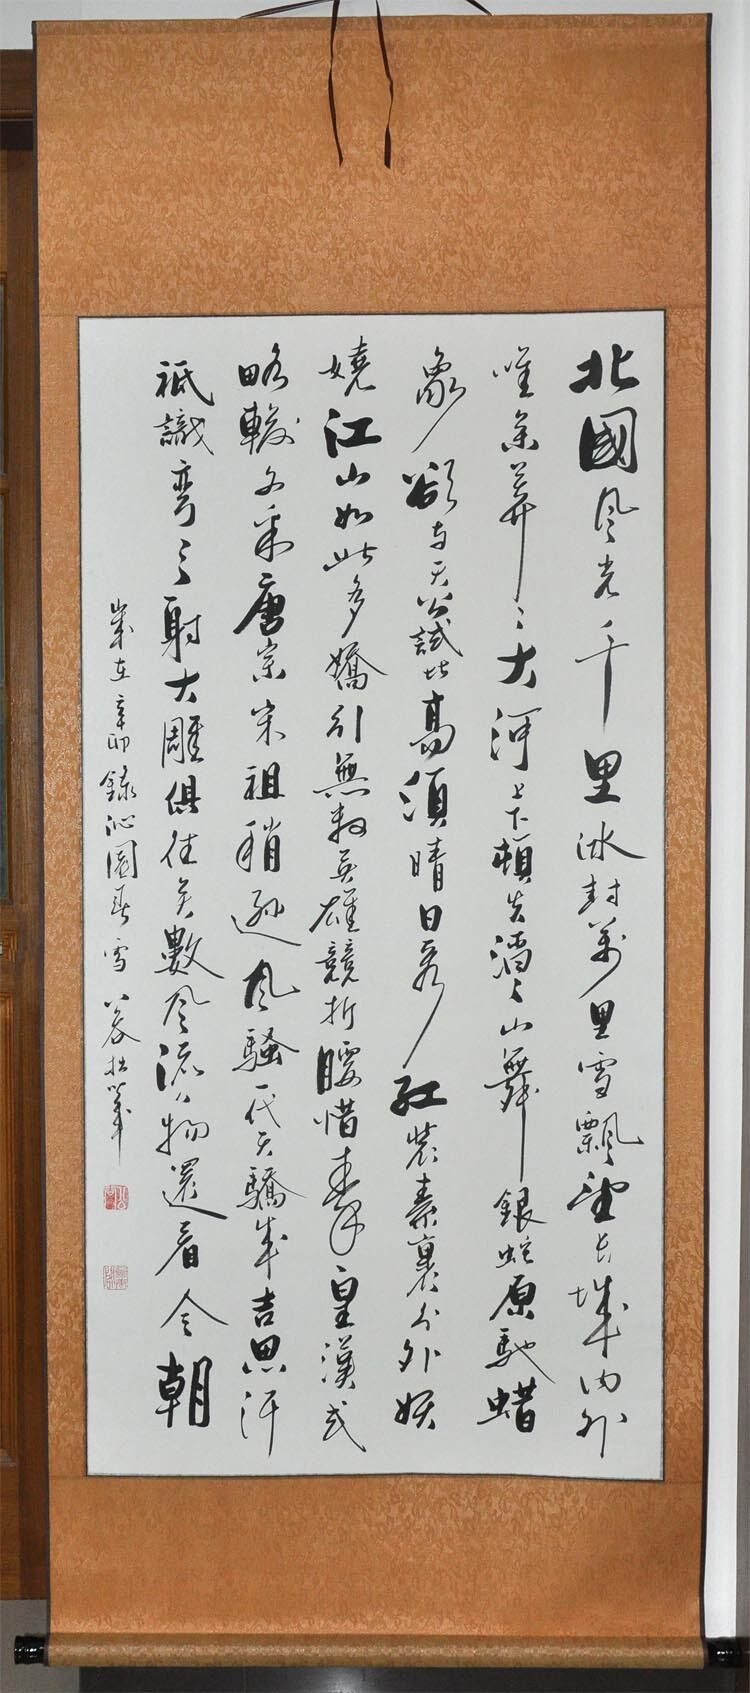 北國風光千里冰封萬里雪飄望長城內外
唯余莽〻大河上下頓失滔〻山舞銀蛇原馳蜡
象欲与天公試比高須晴日看紅裝素裹分外妖
嬈江山如此多嬌引無数英雄競折腰惜秦皇漢武
略輸文采唐宗宋祖稍遜風騷一代天驕成吉思汗
祇識彎弓射大雕俱往矣數風流人物還看今朝
歲在辛卯錄沁園春雪